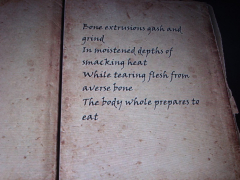 Bone extrusions gash and
grind
In moistened depths of
smacking heat
While tearing flesh from
averse bone
The body whole prepares to
eat